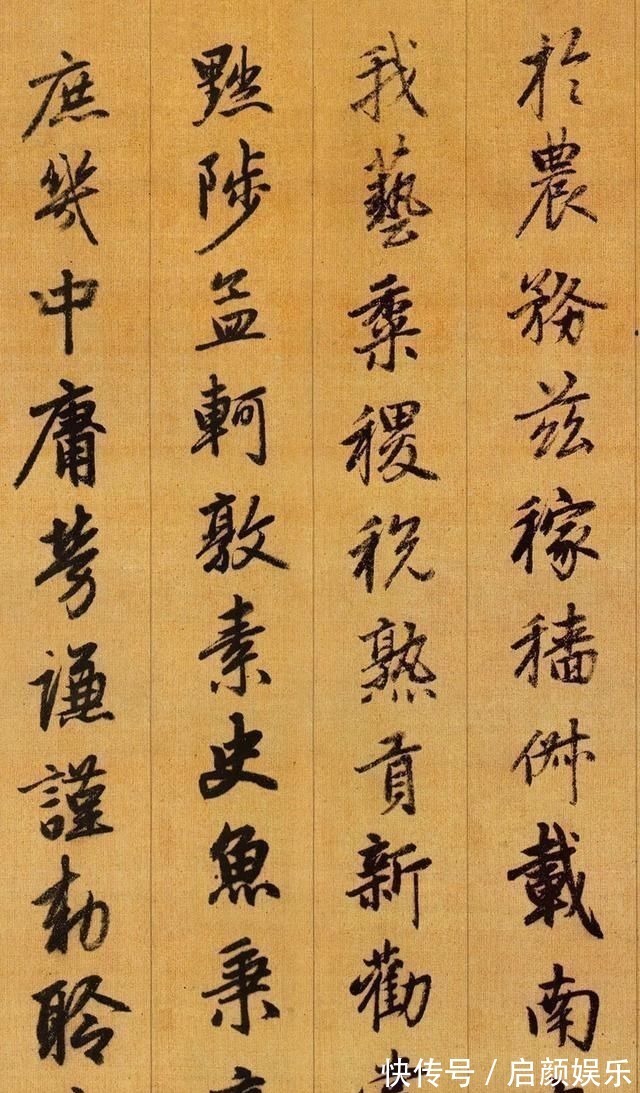 於農務茲稼穡俶載南
我藝黍稷稅熟貢新勸
黜陟孟軻敦素史魚秉
庶幾中庸勞謙謹勅聆
快传号 / 启颜娱乐